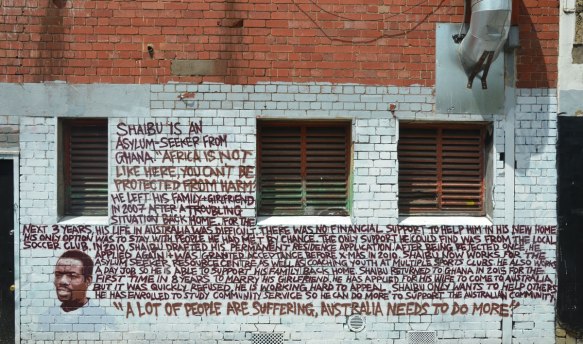 SHAIBU IS AN
ASYLUM-SEEKER FROM
GHANA. "AFRICA IS NOT
LIKE HERE, YOU CAN'T BE
PROTECTED FROM HARM."
HE LEFT HIS FAMILY+GIRLFRIEND
IN 2007 AFTER A TROUBLING
SITUATION BACK HOME. FOR THE
NEXT 3 YEARS, HIS LIFE IN AUSTRALIA WAS DIFFICUL. THERE WAS NO FINANCIAL SUPPORT TO HELP HIM IN HIS NEW HOME
"MY ONLY OPTION WAS TO STAY WITH PEOPLE HE HAD MET BY CHANCE. THE ONLY SUPPORT HE COULD FIND WAS FROM THE LOCAL
SOCCER CLUB. IN 2010, SHAIBU DRAFTED HIS PERMANENT RESIDENCE APPLICATION. AFTER BEING REJECTED ONCE, HE
APPLIED AGAIN + WAS GRANTED ACCEPTANCE BEFORE X-MAS IN 2010. SHAIBU NOW WORKS FOR THE
ASYLUM SEEKER RESOURCE CENTRE AS WELL AS COACHING YOUTH AT MULTIPLE SPORTS CLUBS. HE ALSO WORKS
A PAY JOB SO HE IS ABLE TO SUPPORT HIS FAMILY BACK HOME. SHAIBU RETURNED TO GHANA IN 2015 FOR THE
FIRST TIME IN 8 YEARS TO MARRY HIS GIRLFRIEND. HE HAS APPLIED FOR HIS WIFE TO COME TO AUSTRALIA,
BUT IT WAS QUICKLY REFUSED. HE IS WORKING HARD TO APPEAL. SHAIBU ONLY WANTS TO HELP OTHERS
HE HAS ENROLLED TO STUDY COMMUNITY SERVICE SO HE CAN DO MORE TO SUPPORT THE AUSTRALIAN COMMUNITY.
"A LOT OF PEOPLE ARE SUFFERING, AUSTRALIA NEEDS TO DO MORE."